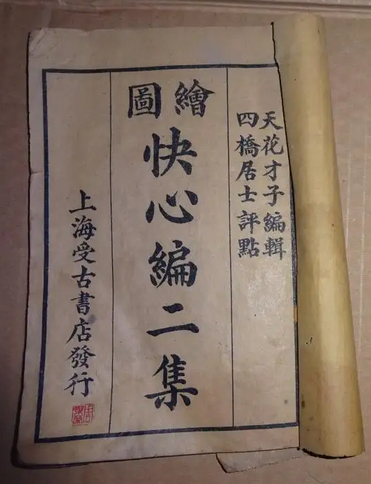 天花才子編輯
四橋居士評點
繪圖
快心編二集
上海受古書店發行